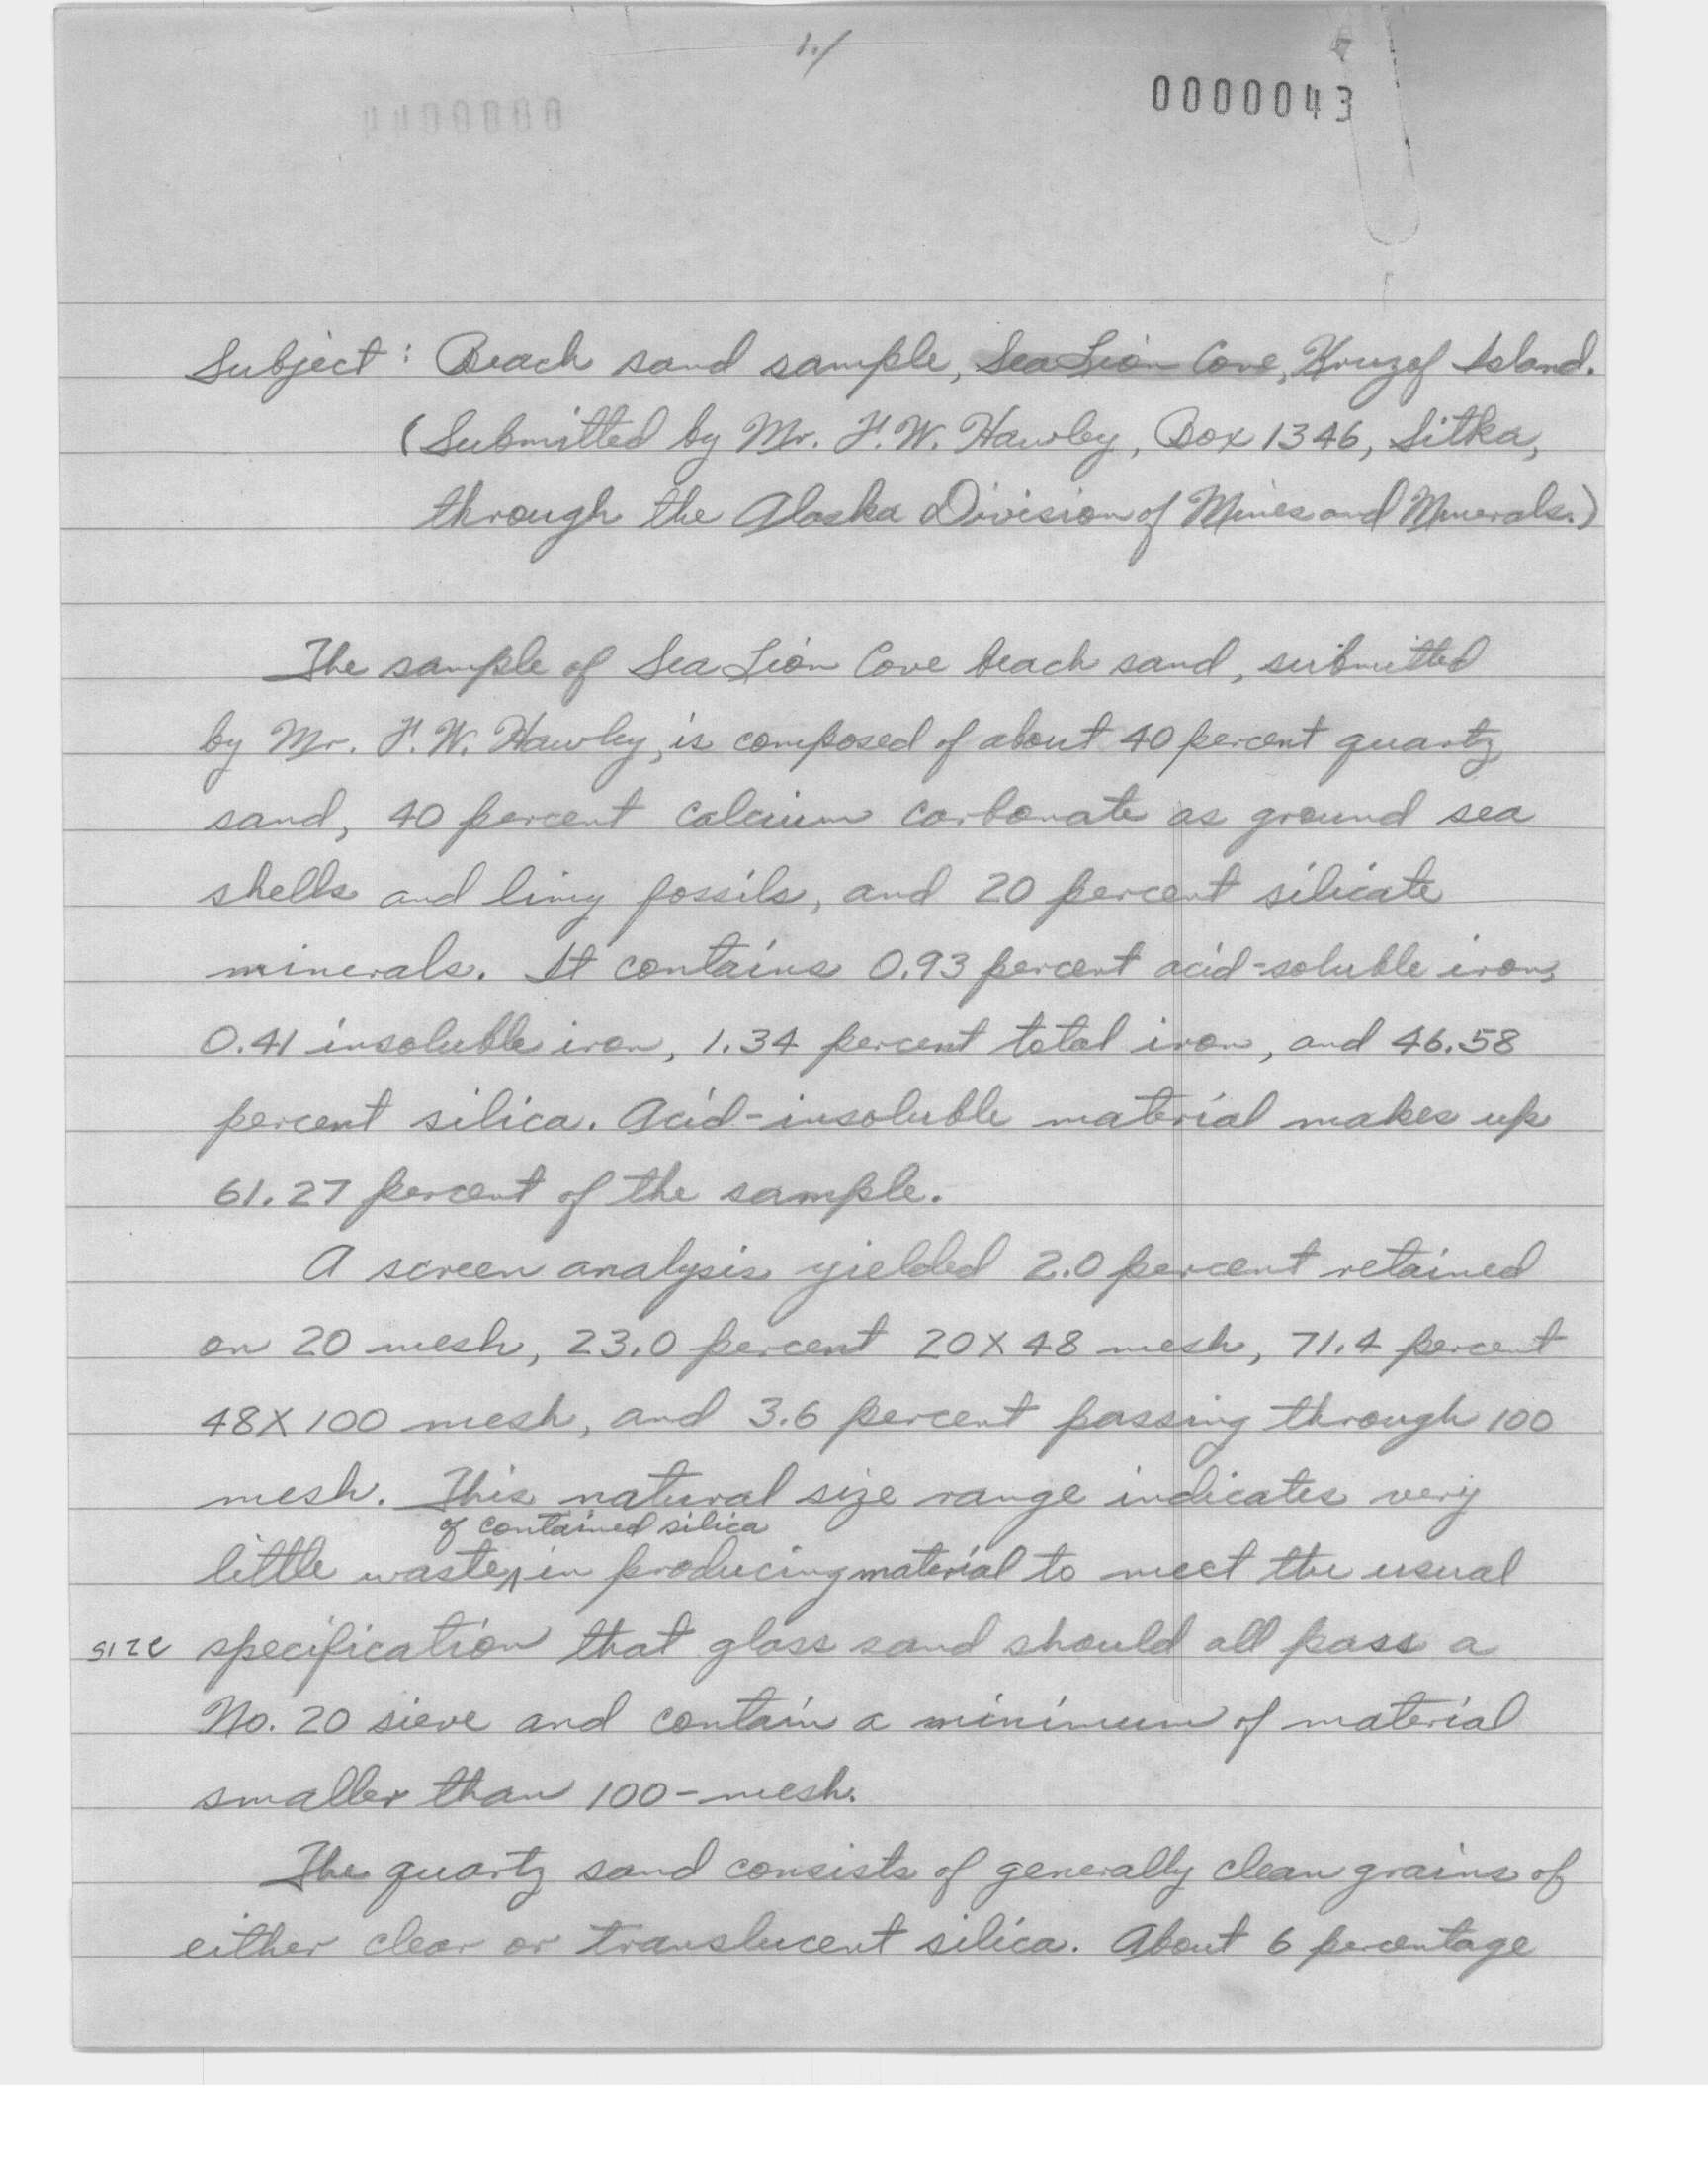 1./
0000043
Subject: Beach sand sample, Sea Lion Cove, Kruzof Island.
(Submitted by Mr. F. W. Hawley, Box 1346, Sitka,
through the Alaska Division of Mines and Minerals.)
The sample of Sea Lion Cove beach sand, submitted
by Mr. F. W. Hawley, is composed of about 40 percent quartz
sand, 40 percent calcium carbonate as ground sea
shells and limy fossils, and 20 percent silicate
minerals. It contains 0.93 percent acid-soluble iron,
0.41 insoluble iron, 1.34 percent total iron, and 46.58
percent silica. Acid-insoluble material makes up
61.27 percent of the sample.
A screen analysis yielded 2.0 percent retained
on 20 mesh, 23.0 percent 20X48 mesh, 71.4 percent
48X100 mesh, and 3.6 percent passing through 100
mesh. This natural size range indicates very
of contained silica
little waste in producing material to meet the usual
size specification that glass sand should all pass a
No. 20 sieve and contain a minimum of material
smaller than 100-mesh.
The quartz sand consists of generally clean grains of
either clear or translucent silica. About 6 percentage